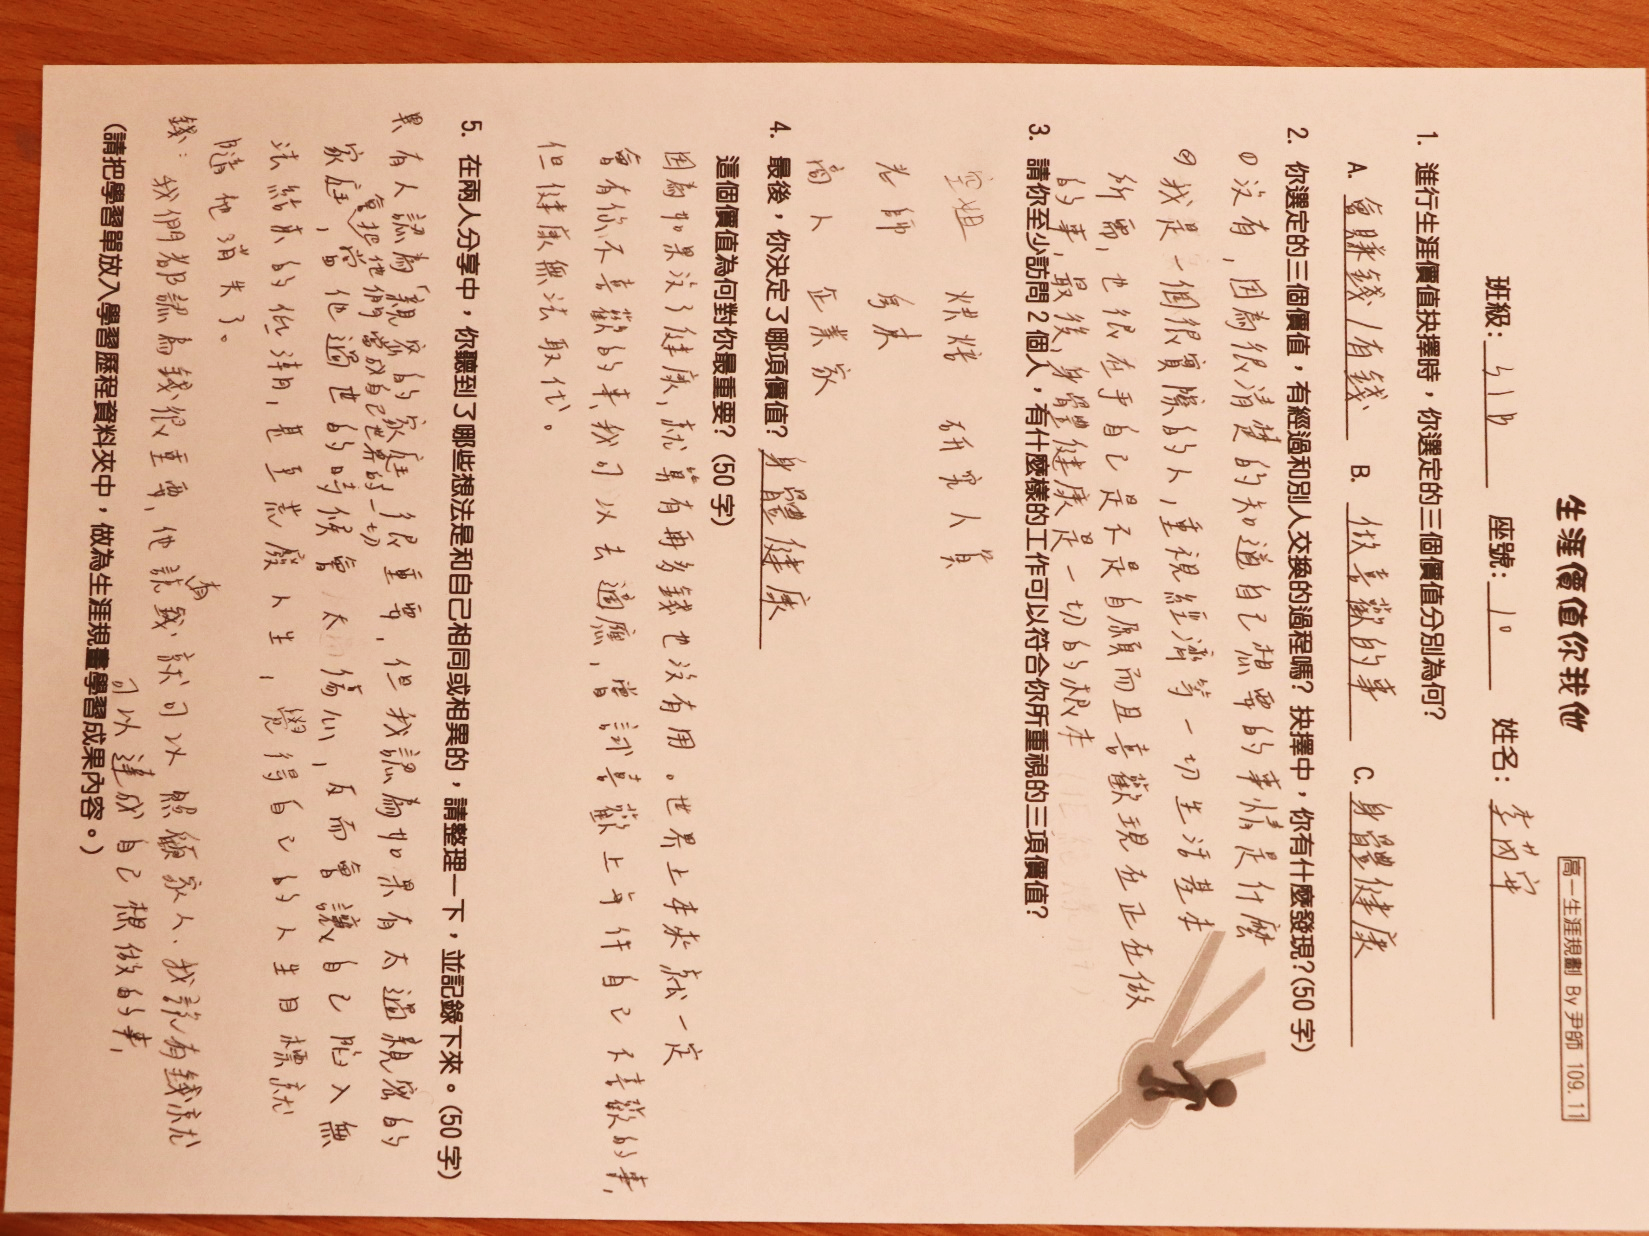 生涯價值你我他
高一生涯規劃 By 尹師 109.11
班級: 座號: 10 姓名: 李芮安
1. 進行生涯價值抉擇時，你選定的三個價值分別為何?
A. 會賺錢/有錢 B. 做喜歡的事 C. 身體健康
2. 你選定的三個價值，有經過和別人交換的過程嗎? 抉擇中，你有什麼發現?(50 字)
①沒有，因為很清楚的知道自己想要的事情是什麼
②我是一個很實際的人，重視經濟等一切生活基本
所需，也很在乎自己是不是自願而且喜歡現在正在做
的事，最後，身體健康是一切的根本
3. 請你至少訪問 2 個人，有什麼樣的工作可以符合你所重視的三項價值?
空姐 烘焙 研究人員
老師 房東
商人 企業家
4. 最後，你決定了哪項價值? 身體健康
這個價值為何對你最重要? (50 字)
因為如果沒了健康，就算有再多錢也沒有用。世界上本來就一定
會有你不喜歡的事，我可以去適應，嘗試喜歡上每件自己不喜歡的事，
但健康無法取代。
5. 在兩人分享中，你聽到了哪些想法是和自己相同或相異的，請整理一下，並記錄下來。(50 字)
異 有人認為「親密的家庭」很重要，但我認為如果有太過親密的
家庭，會把他們當成自己世界的一切，當他過世的時候會太傷心，反而會讓自己陷入無
法結束的低潮，甚至荒廢人生，覺得自己的人生目標就
隨他消失了。
錢：我們都認為錢很重要，他說有錢就可以照顧家人、我說有錢就
可以達成自己想做的事，
(請把學習單放入學習歷程資料夾中，做為生涯規畫學習成果內容。)